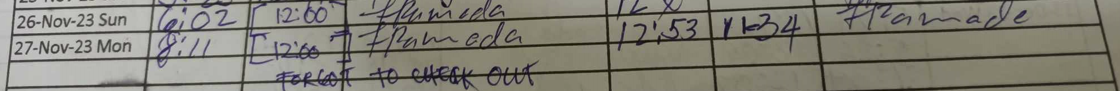 26-Nov-23 Sun 6:02 [12:00 #Ramada #Ramade
27-Nov-23 Mon 8:11 [12:00] #Ramada 12:53 11:34
FORGOT TO CHECK OUT